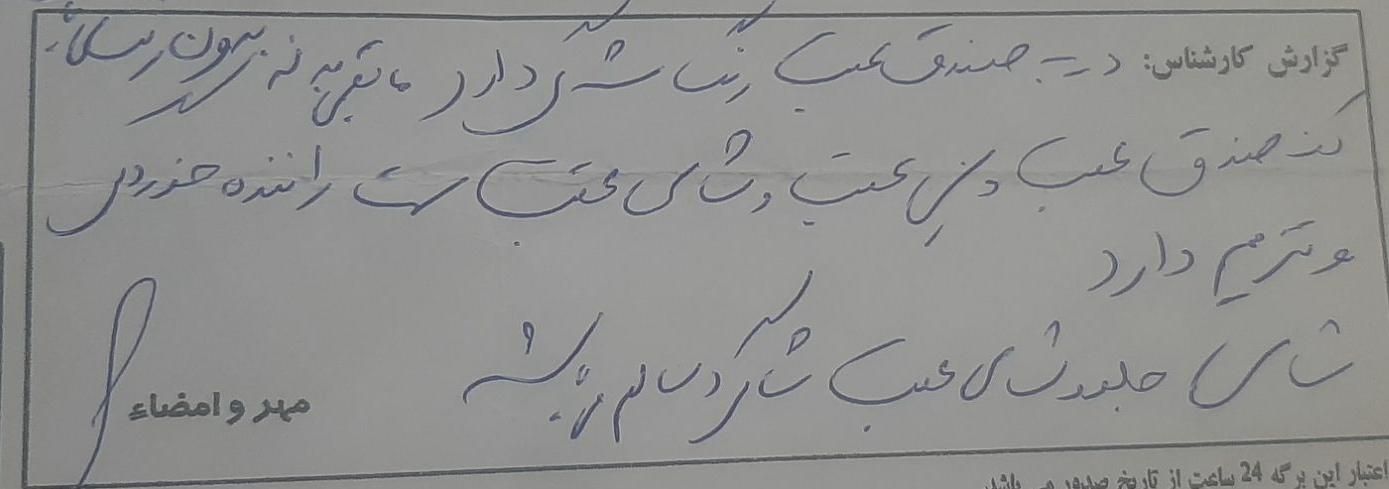 گزارش کارشناس: درب صندوق عقب رنگ شدگی دارد مابقی بدنه بدون رنگ
کف صندوق عقب و عقب و شاسی عقب سمت راننده خوردگی
و ترمیم دارد
شاسی جلو و شاسی عقب شاگرد سالم
مهر و امضاء
اعتبار این برگه 24 ساعت از تاریخ صدور می باشد